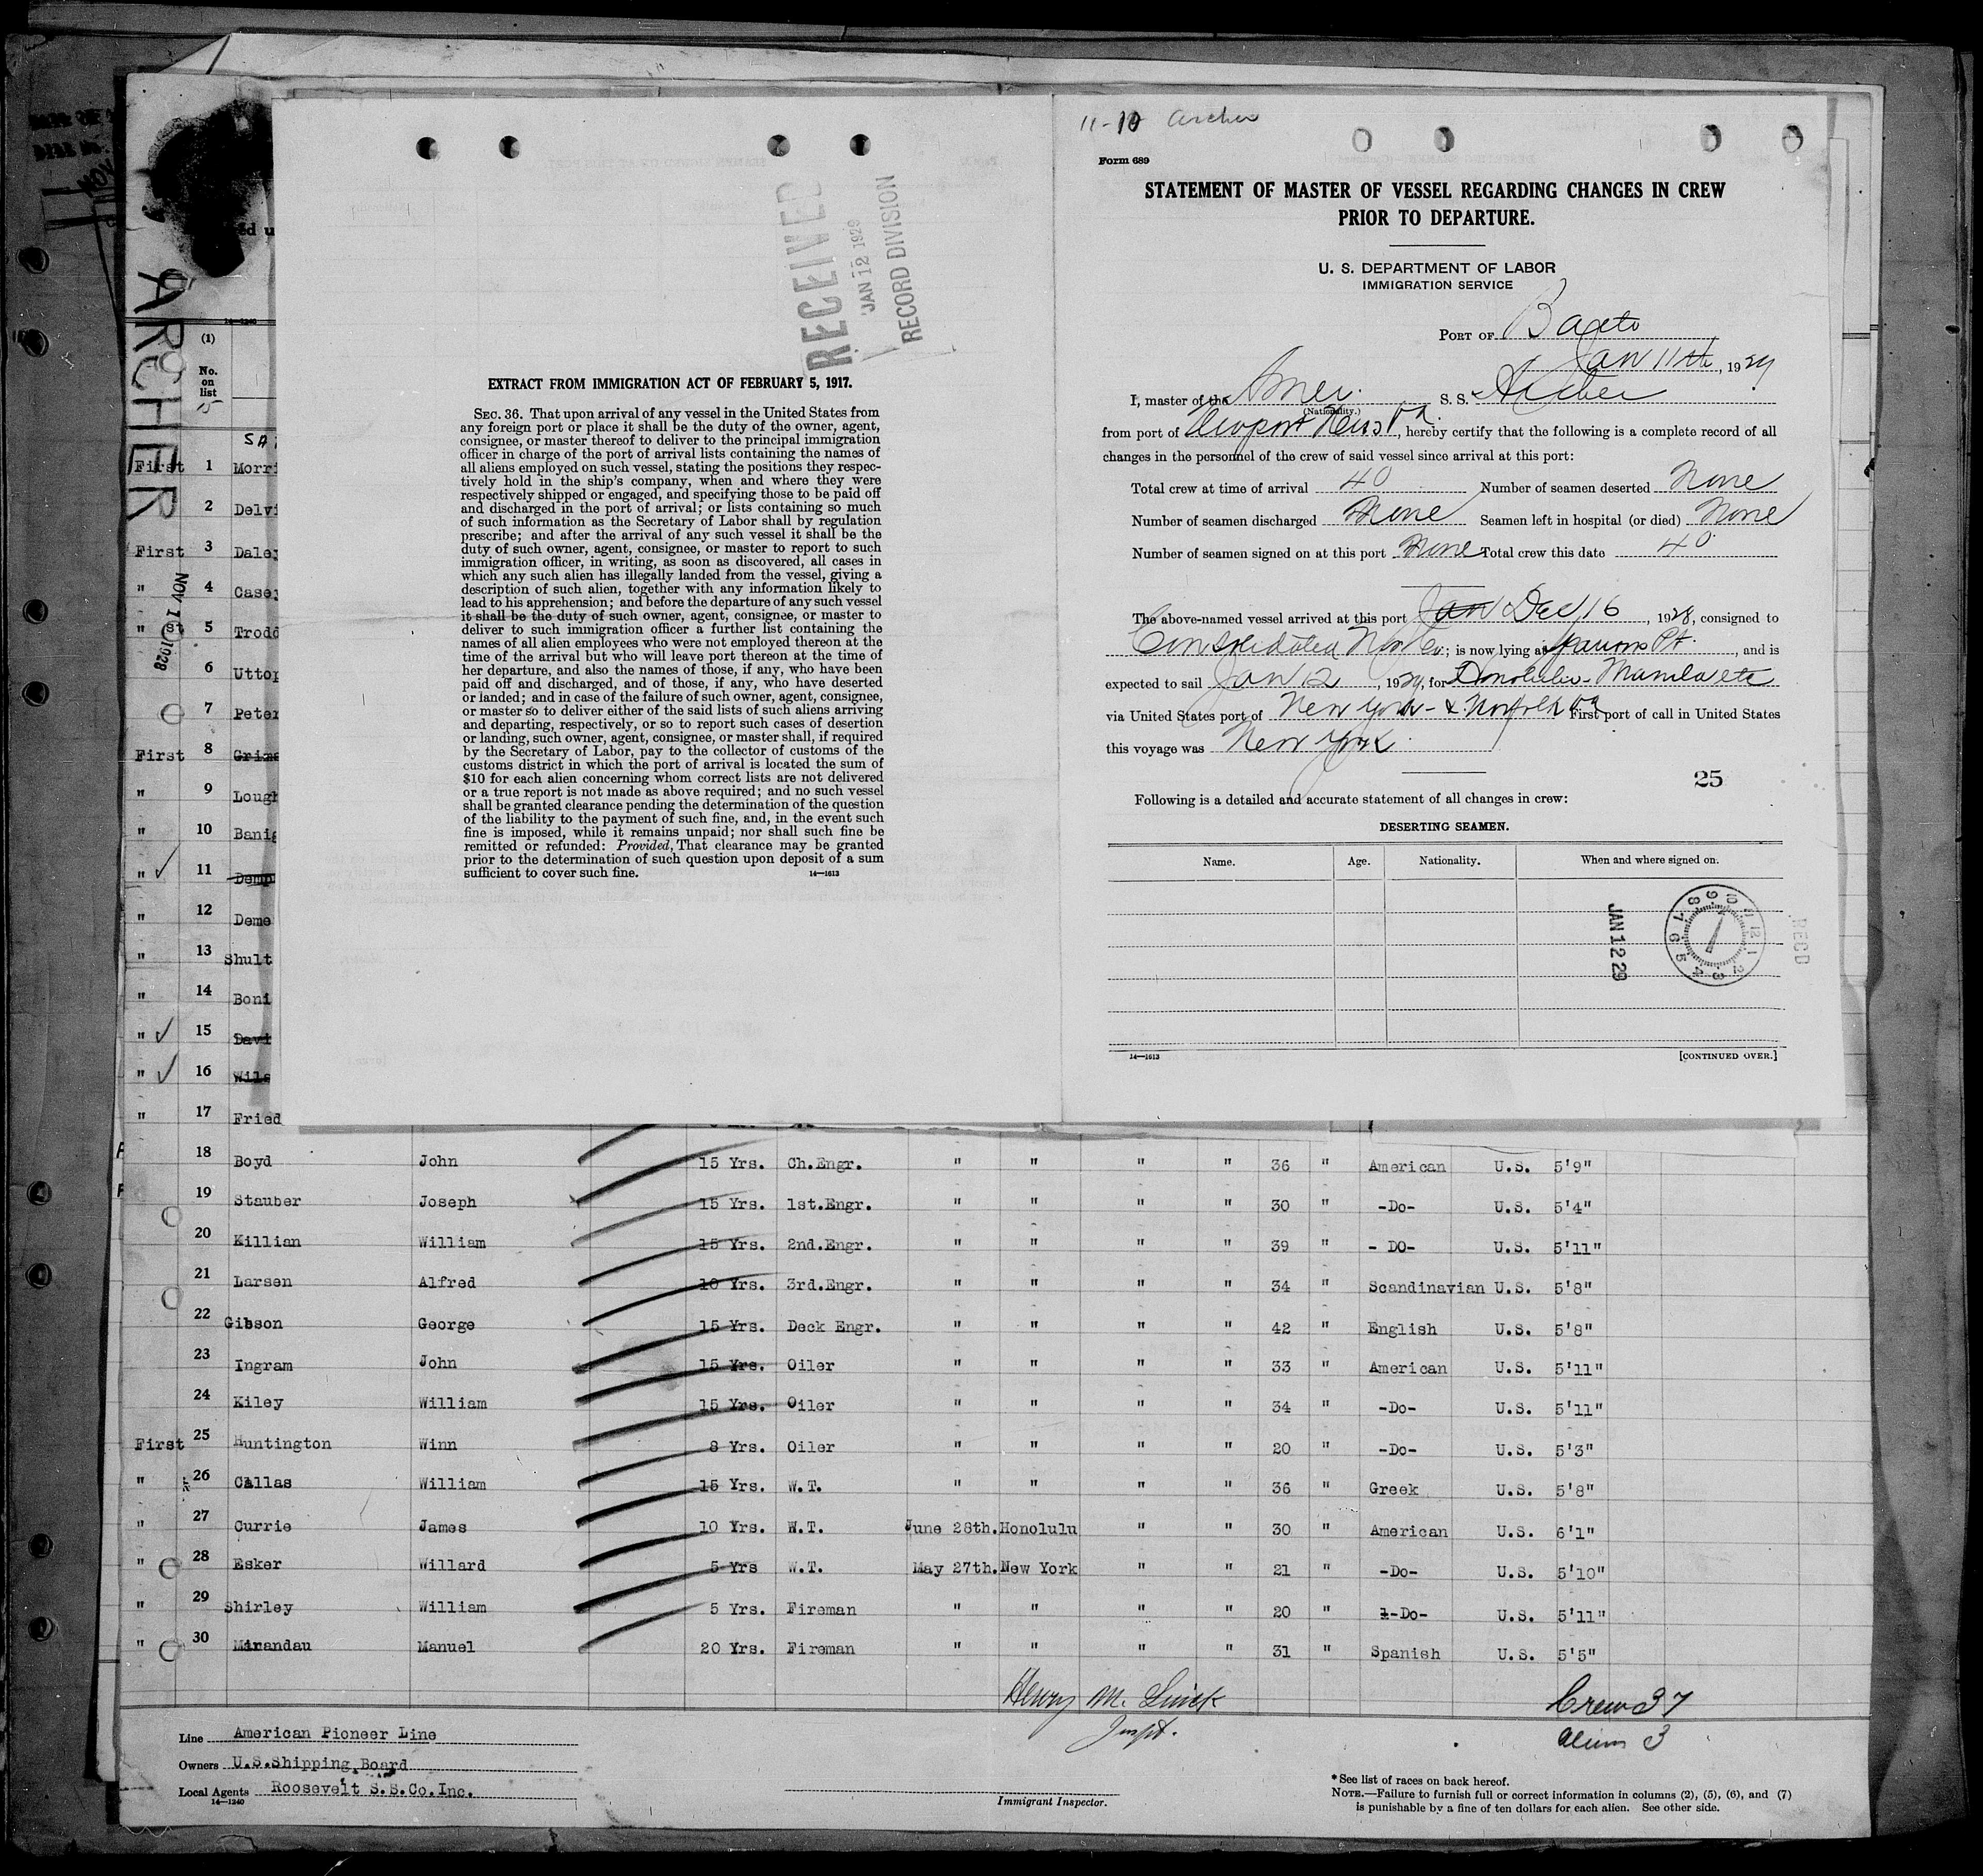 11-10 Archer
Form 689
STATEMENT OF MASTER OF VESSEL REGARDING CHANGES IN CREW
PRIOR TO DEPARTURE.
U. S. DEPARTMENT OF LABOR
IMMIGRATION SERVICE
PORT OF Balto
Jan 11th, 1929
I, master of the Amer. S. S. Archer
(Nationality.)
from port of Newport News Va., hereby certify that the following is a complete record of all
changes in the personnel of the crew of said vessel since arrival at this port:
Total crew at time of arrival 40 Number of seamen deserted None
Number of seamen discharged None Seamen left in hospital (or died) None
Number of seamen signed on at this port None Total crew this date 40
The above-named vessel arrived at this port Jan Dec 16, 1928, consigned to
Consolidated Nav Co; is now lying at Sparrows Pt., and is
expected to sail Jan 12, 1929, for Honolulu - Manila etc
via United States port of New York - & Norfolk Va First port of call in United States
this voyage was New York
25
Following is a detailed and accurate statement of all changes in crew:
DESERTING SEAMEN.
Name. Age. Nationality. When and where signed on.
JAN 12 29
RECD
14—1613 [CONTINUED OVER.]
RECEIVED
JAN 12 1929
RECORD DIVISION
EXTRACT FROM IMMIGRATION ACT OF FEBRUARY 5, 1917.
SEC. 36. That upon arrival of any vessel in the United States from
any foreign port or place it shall be the duty of the owner, agent,
consignee, or master thereof to deliver to the principal immigration
officer in charge of the port of arrival lists containing the names of
all aliens employed on such vessel, stating the positions they respec-
tively hold in the ship's company, when and where they were
respectively shipped or engaged, and specifying those to be paid off
and discharged in the port of arrival; or lists containing so much
of such information as the Secretary of Labor shall by regulation
prescribe; and after the arrival of any such vessel it shall be the
duty of such owner, agent, consignee, or master to report to such
immigration officer, in writing, as soon as discovered, all cases in
which any such alien has illegally landed from the vessel, giving a
description of such alien, together with any information likely to
lead to his apprehension; and before the departure of any such vessel
it shall be the duty of such owner, agent, consignee, or master to
deliver to such immigration officer a further list containing the
names of all alien employees who were not employed thereon at the
time of the arrival but who will leave port thereon at the time of
her departure, and also the names of those, if any, who have been
paid off and discharged, and of those, if any, who have deserted
or landed; and in case of the failure of such owner, agent, consignee,
or master so to deliver either of the said lists of such aliens arriving
and departing, respectively, or so to report such cases of desertion
or landing, such owner, agent, consignee, or master shall, if required
by the Secretary of Labor, pay to the collector of customs of the
customs district in which the port of arrival is located the sum of
$10 for each alien concerning whom correct lists are not delivered
or a true report is not made as above required; and no such vessel
shall be granted clearance pending the determination of the question
of the liability to the payment of such fine, and, in the event such
fine is imposed, while it remains unpaid; nor shall such fine be
remitted or refunded: Provided, That clearance may be granted
prior to the determination of such question upon deposit of a sum
sufficient to cover such fine. 14—1613
ARCHER
NOV 10 1928
14—1240
(1)
No.
on
list
First 1 Morri
2 Delvi
First 3 Daley
" 4 Casey
" 5 Trodd
6 Uttop
7 Peter
First 8 Grime
" 9 Lough
" 10 Banig
" 11 Demp
" 12 Deme
" 13 Shult
" 14 Boni
" 15 Davi
" 16 Wils
" 17 Fried
18 Boyd John 15 Yrs. Ch.Engr. " " " " 36 " American U.S. 5'9"
19 Stauber Joseph 15 Yrs. 1st.Engr. " " " " 30 " -Do- U.S. 5'4"
20 Killian William 15 Yrs. 2nd.Engr. " " " " 39 " - DO- U.S. 5'11"
21 Larsen Alfred 10 Yrs. 3rd.Engr. " " " " 34 " Scandinavian U.S. 5'8"
22 Gibson George 15 Yrs. Deck Engr. " " " " 42 " English U.S. 5'8"
23 Ingram John 15 Yrs. Oiler " " " " 33 " American U.S. 5'11"
24 Kiley William 15 Yrs. Oiler " " " " 34 " -Do- U.S. 5'11"
First 25 Huntington Winn 8 Yrs. Oiler " " " " 20 " -Do- U.S. 5'3"
" 26 Callas William 15 Yrs. W.T. " " " " 36 " Greek U.S. 5'8"
" 27 Currie James 10 Yrs. W.T. June 28th. Honolulu " " 30 " American U.S. 6'1"
" 28 Esker Willard 5 Yrs W.T. May 27th. New York " " 21 " -Do- U.S. 5'10"
" 29 Shirley William 5 Yrs. Fireman " " " " 20 " -Do- U.S. 5'11"
" 30 Mirandau Manuel 20 Yrs. Fireman " " " " 31 " Spanish U.S. 5'5"
Henry M. Inspt.
Crew 37
Aliens 3
Line American Pioneer Line
Owners U.S.Shipping Board
Local Agents Roosevelt S.S.Co.Inc.
14—1240
Immigrant Inspector.
*See list of races on back hereof.
NOTE.—Failure to furnish full or correct information in columns (2), (5), (6), and (7)
is punishable by a fine of ten dollars for each alien. See other side.